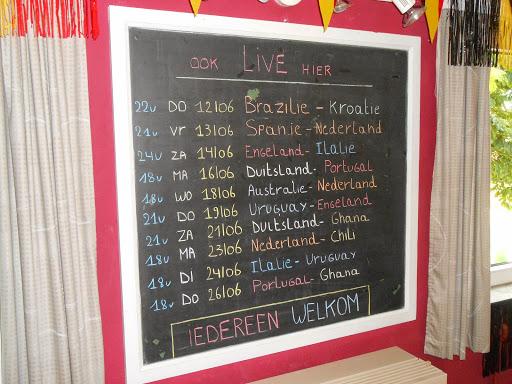 OOK LiVE HIER
22u DO 12/06 Brazilie - Kroatie
21u VR 13/06 Spanje - Nederland
24u ZA 14/06 Engeland - Italie
18u MA 16/06 Duitsland - Portugal
18u WO 18/06 Australie - Nederland
21u DO 19/06 Uruguay - Engeland
21u ZA 21/06 Duitsland - Ghana
18u MA 23/06 Nederland - Chili
18u DI 24/06 Italie - Uruguay
18u DO 26/06 Portugal - Ghana
iEDEREEN WELKOM